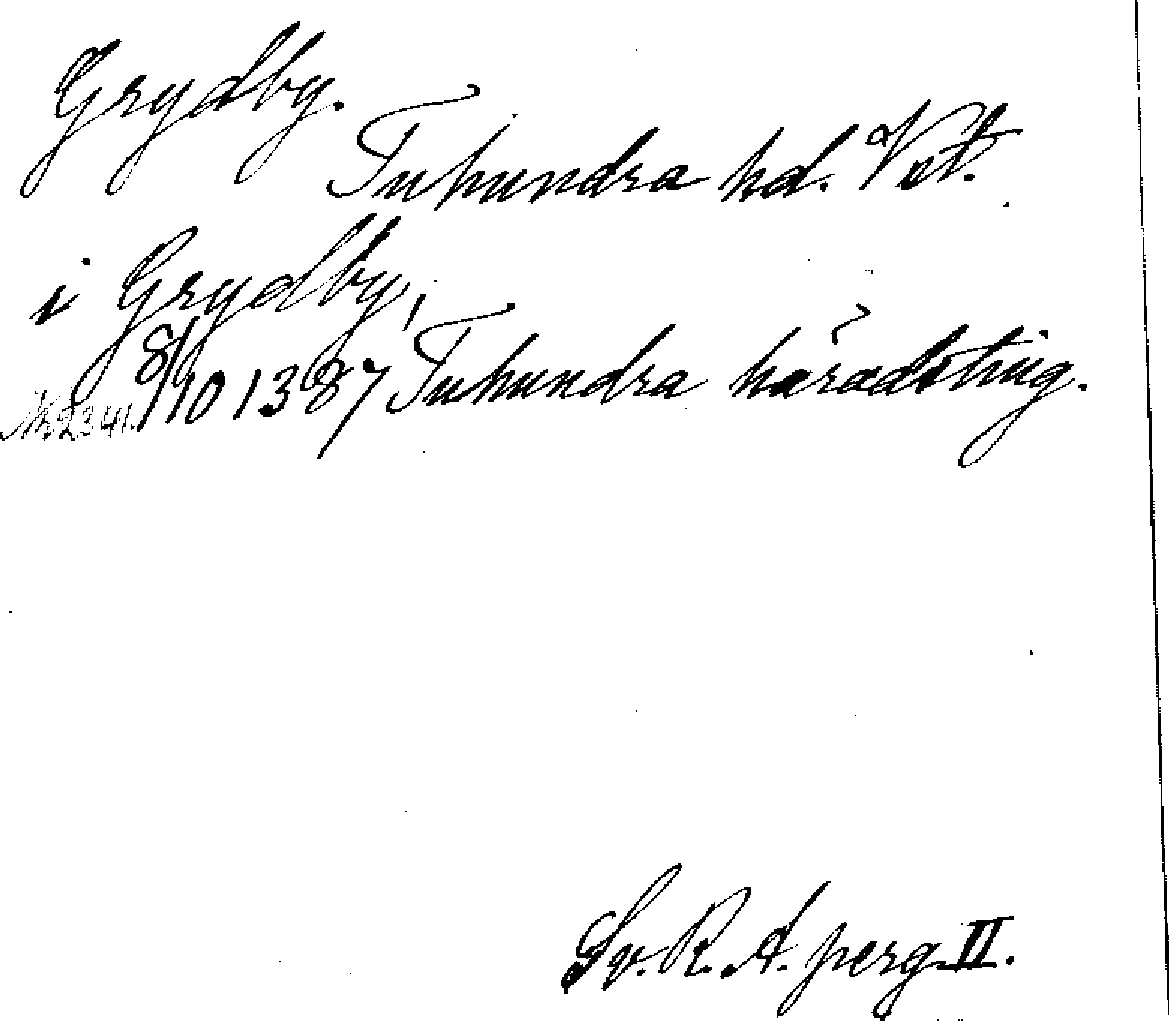 Grydby.
Tuhundra hd. Vst.
i Grydby,
№ 2341. 8/10 1387 Tuhundra häradsting.
Sv. R. A. perg. II.